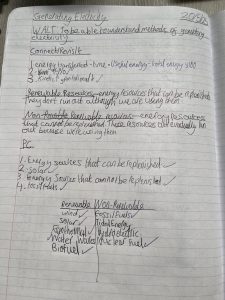 Generating Elecricity
WALT: To be able to understand methods of generating
electricity
Connect/Revisit
1. energy transferred ÷ time
2. 
3. Kinetic + gravitational ✓
Renewable Resources - energy resources that will be replenished
They don't run out although we are using them
Non-Renewable resources - energy resources
that cannot be replenished These resources will eventually run
out because were using them
PC
1. Energy sources that can be replenished ✓
2. Solar ✓
3. Energy sources that cannot be replenished ✓
4. Fossil fuels ✓
Renewable Non-Renewable
Wind ✓ Fossil Fuels
Solar ✓ Tidal Energy
Geothermal ✓ Hydroelectric
Water Waves Nuclear Fuel ✓
Biofuel ✓